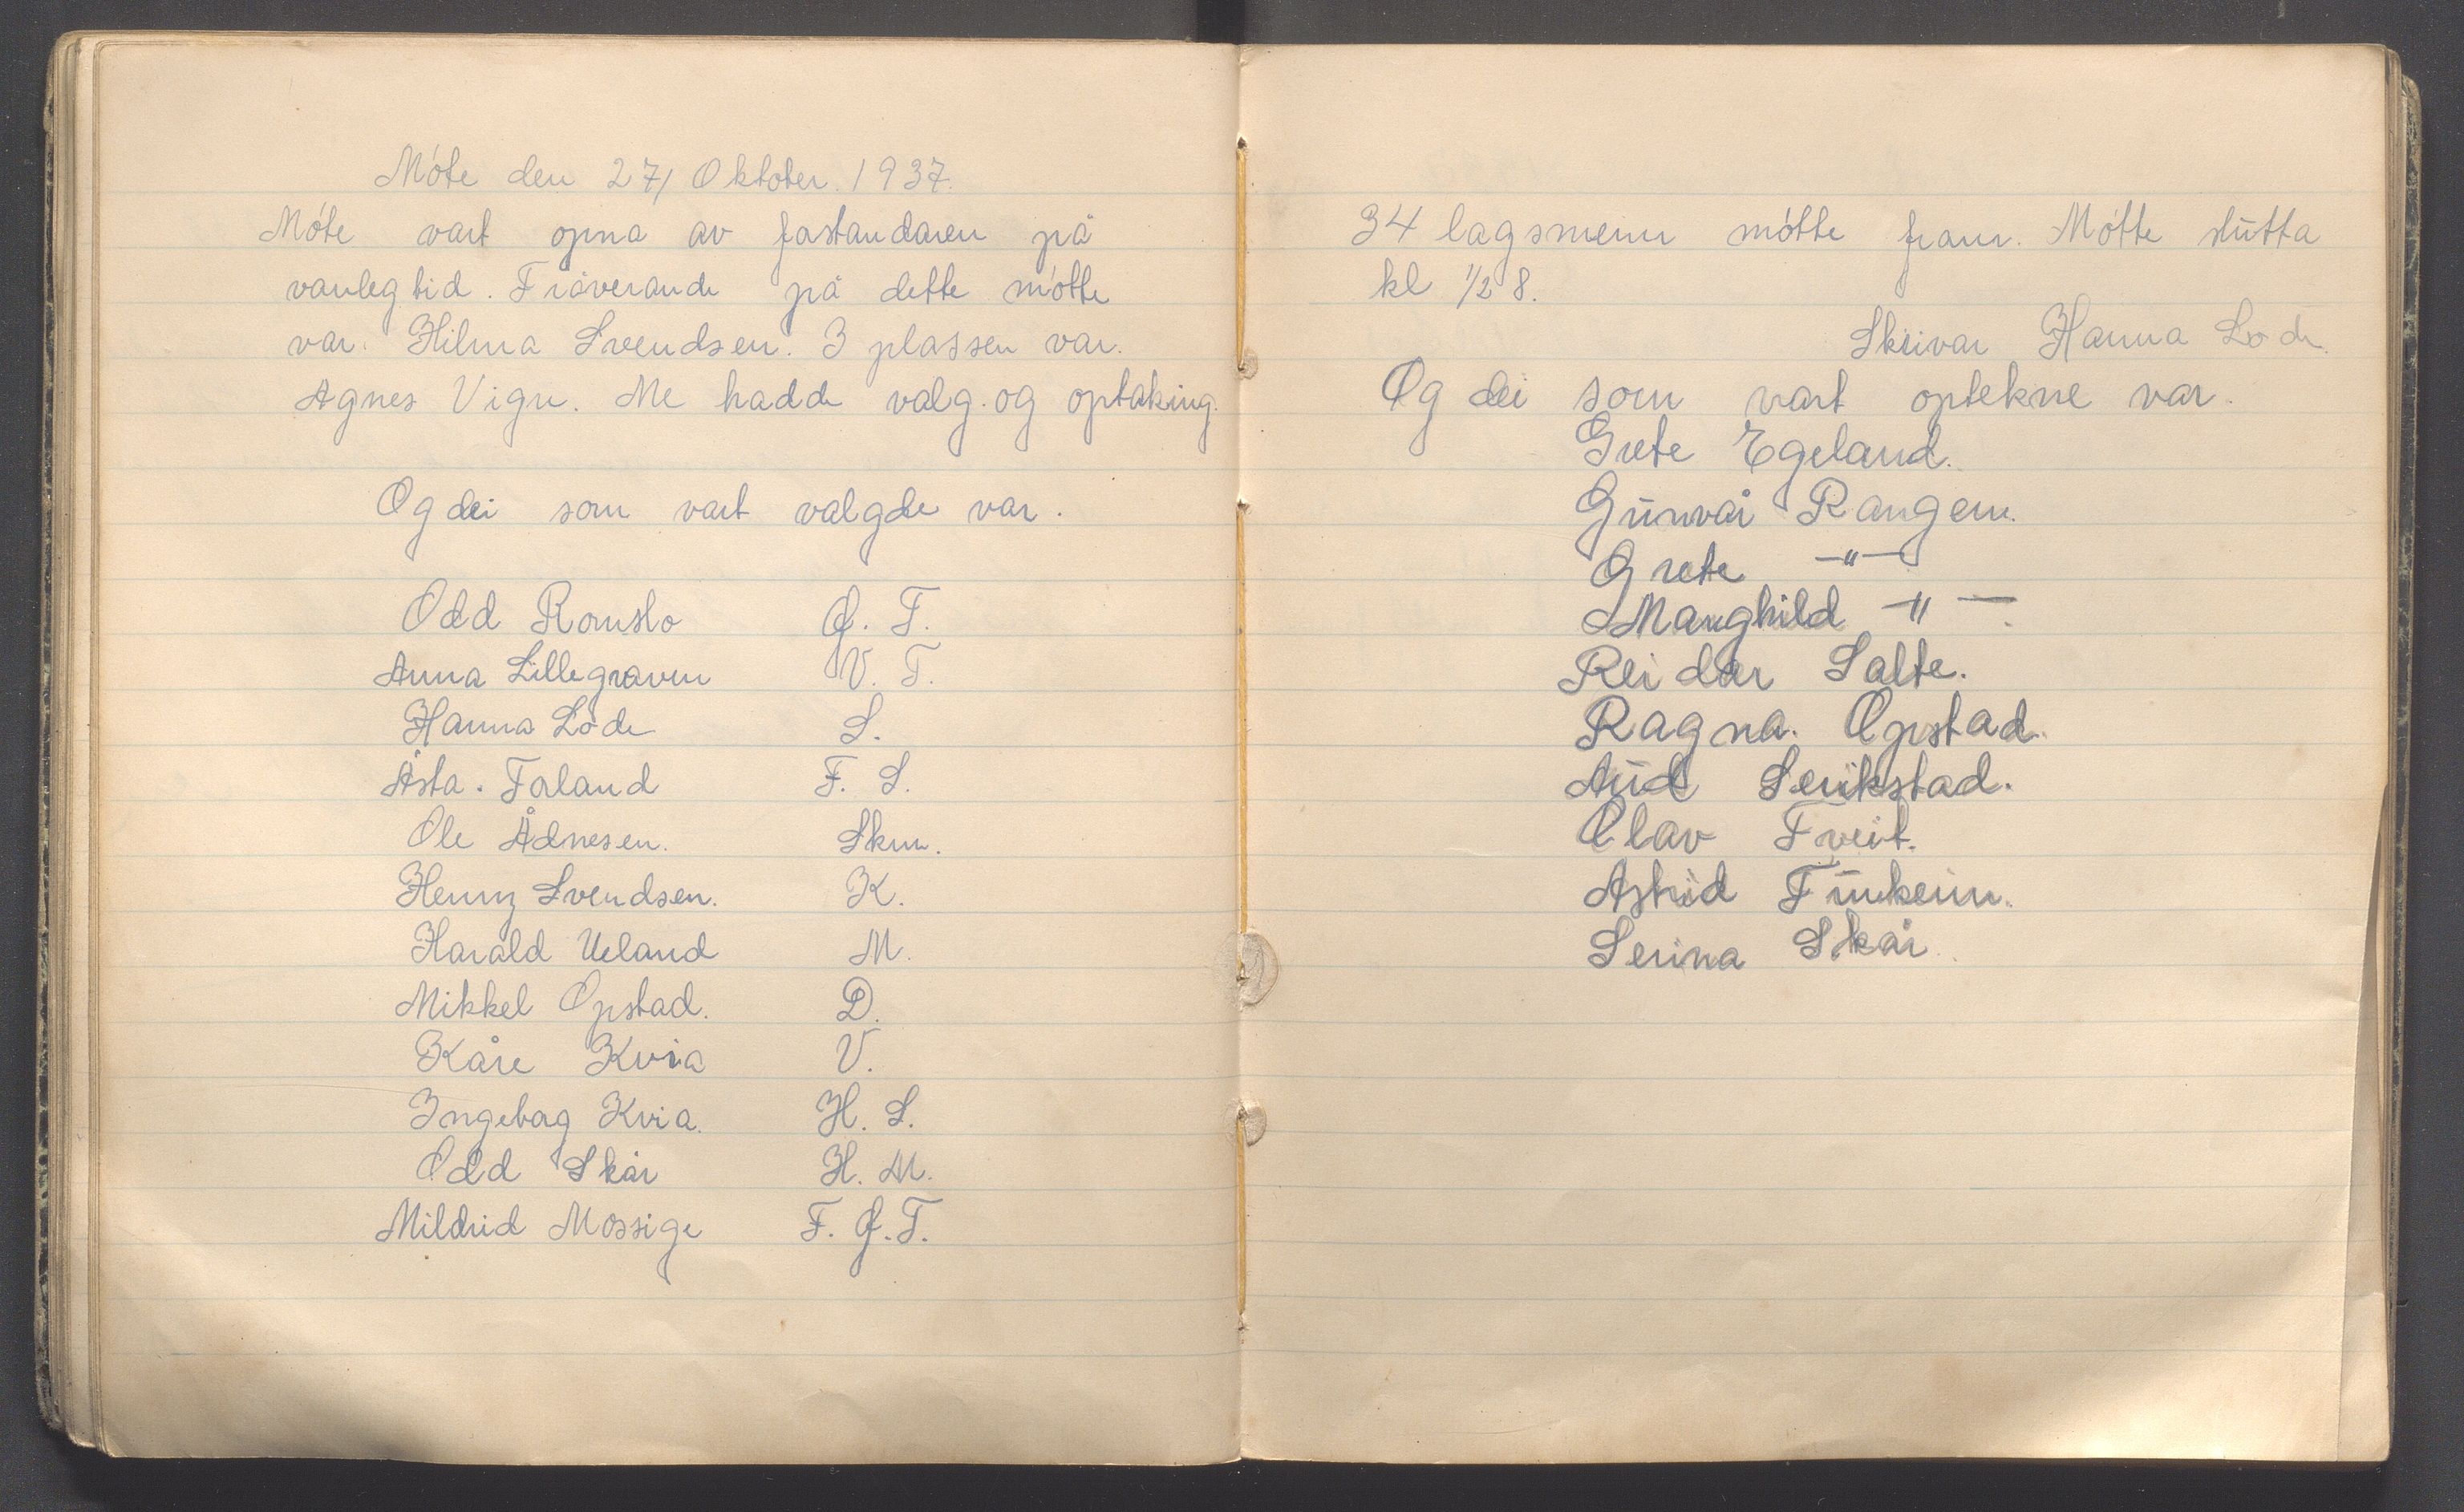 Móte den 27/ Oktober. 1937.
Móte vart opna av fostandaren på
vanleg tid. Fråverande på dette mótte
var. Hilma Svendsen. 3 plassen var.
Agnes Vigre. Me hadde valg og optaking.
Og dei som vart valgde var.
Odd Romslo Ø. T.
Anna Lillegraven V. T.
Hanna Lode S.
Åsta. Forland F. S.
Ole Ådnesen. Skm.
Henny Svendsen. K.
Harald Ueland M.
Mikkel Opstad. D.
Kåre Kvia V.
Ingeborg Kvia. H. S.
Odd Skår H. M.
Mildrid Mossige F. Ø. T.
34 lagsmenn mótte fram. Mótte slutta
kl 1/2 8.
Skrivar Hanna Lode.
Og dei som vart optekne var.
Grete Egeland.
Gunvår Rangen.
Grete —"—
Manghild —"—
Reidar Salte.
Ragna. Opstad.
Aud Serikstad.
Olav Tveit.
Astrid Tunheim.
Serina Skår.